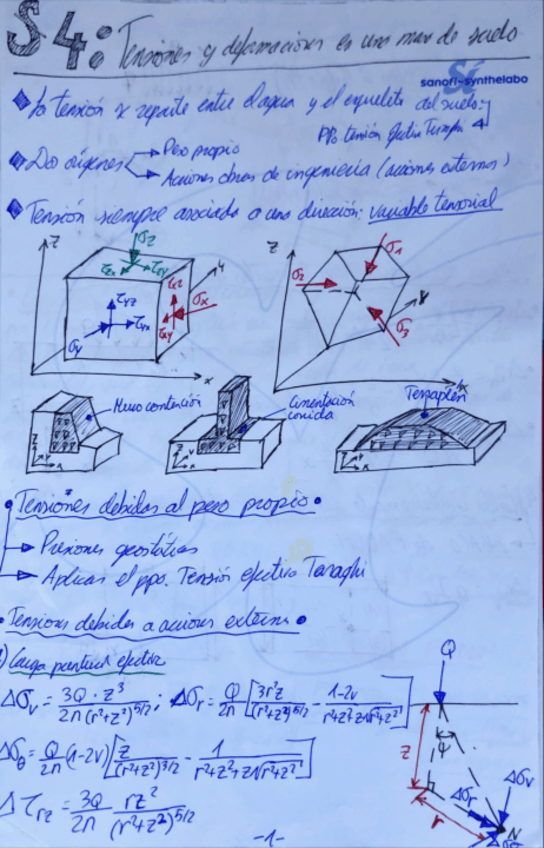 S4: Tensiones y deformaciones en una masa de suelo
Sí
sanofi~synthelabo
La tensión se reparte entre el agua y el esqueleto del suelo:
ppo tensión efectiva Terzaghi
Dos orígenes
Peso propio
Acciones obras de ingeniería (acciones externas)
Tensión siempre asociada a una dirección: variable tensorial
z σz τzx τzy y τxz σx τxy τyz τyx σy x
z σ1 σ2 σ3 y x
Muro contención
Cimentación corrida
Terraplén
z y x
z y x
z y x
• Tensiones debidas al peso propio •
Presiones geostáticas
Aplicar el ppo. Tensión efectiva Terzaghi
• Tensiones debidas a acciones externas •
Carga puntual efectiva
Δσv = 3Q·z³ / 2π(r²+z²)^5/2 ; Δσr = Q/2π [3r²z/(r²+z²)^5/2 - 1-2ν/r²+z²+z√r²+z²]
Δσθ = Q/2π (1-2ν) [z/(r²+z²)^3/2 - 1/r²+z²+z√r²+z²]
Δτrz = 3Q/2π rz²/(r²+z²)^5/2
Q
ψ
z
Δσv
Δσr
r
N
-1-